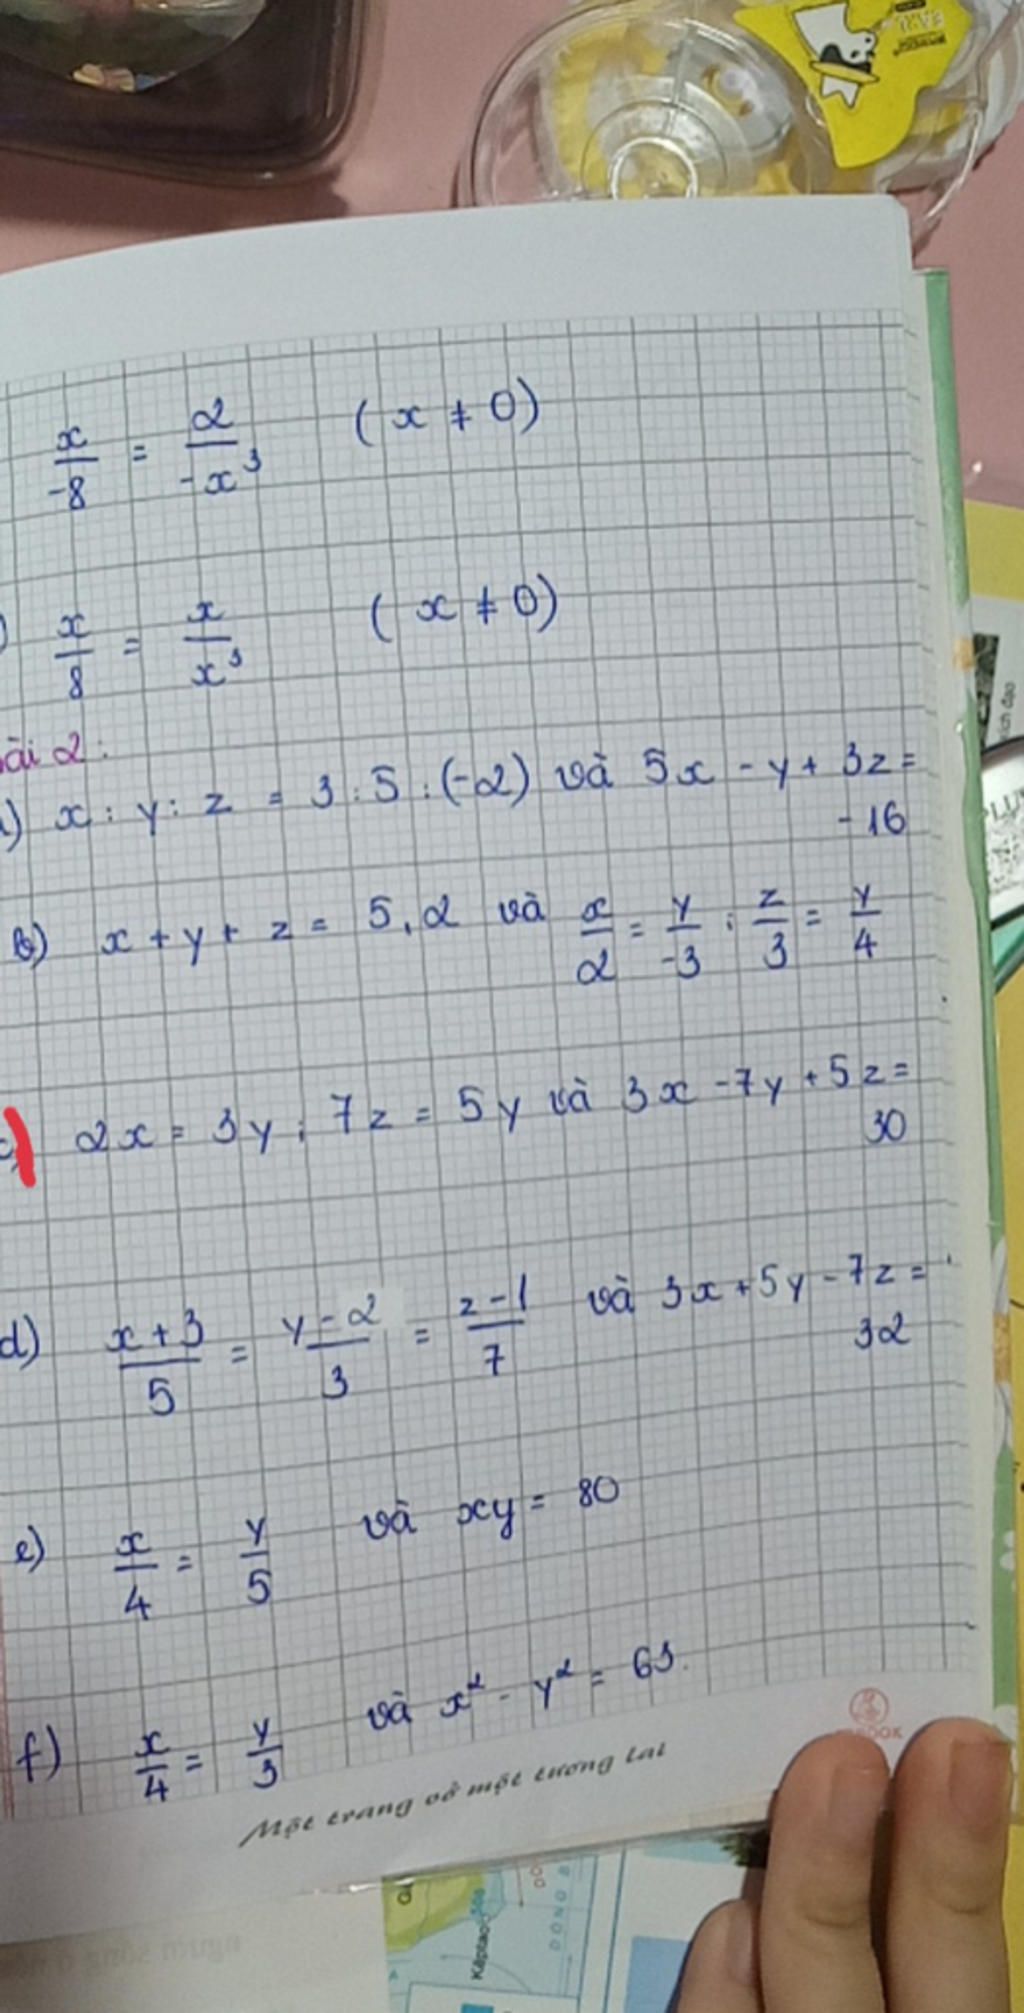 x/-8 = 2/-x³ (x ≠ 0)
) x/8 = x/x³ (x ≠ 0)
ài 2:
) x : y : z = 3 : 5 : (-2) và 5x - y + 3z =
-16
b) x + y + z = 5,2 và x/2 = y/-3 ; z/3 = y/4
c) 2x = 3y ; 7z = 5y và 3x - 7y + 5z =
30
d) x+3/5 = y-2/3 = z-1/7 và 3x + 5y - 7z =
32
e) x/4 = y/5 và xy = 80
f) x/4 = y/3 và x² - y² = 63
Một trang vở một tương lai
Kêptao